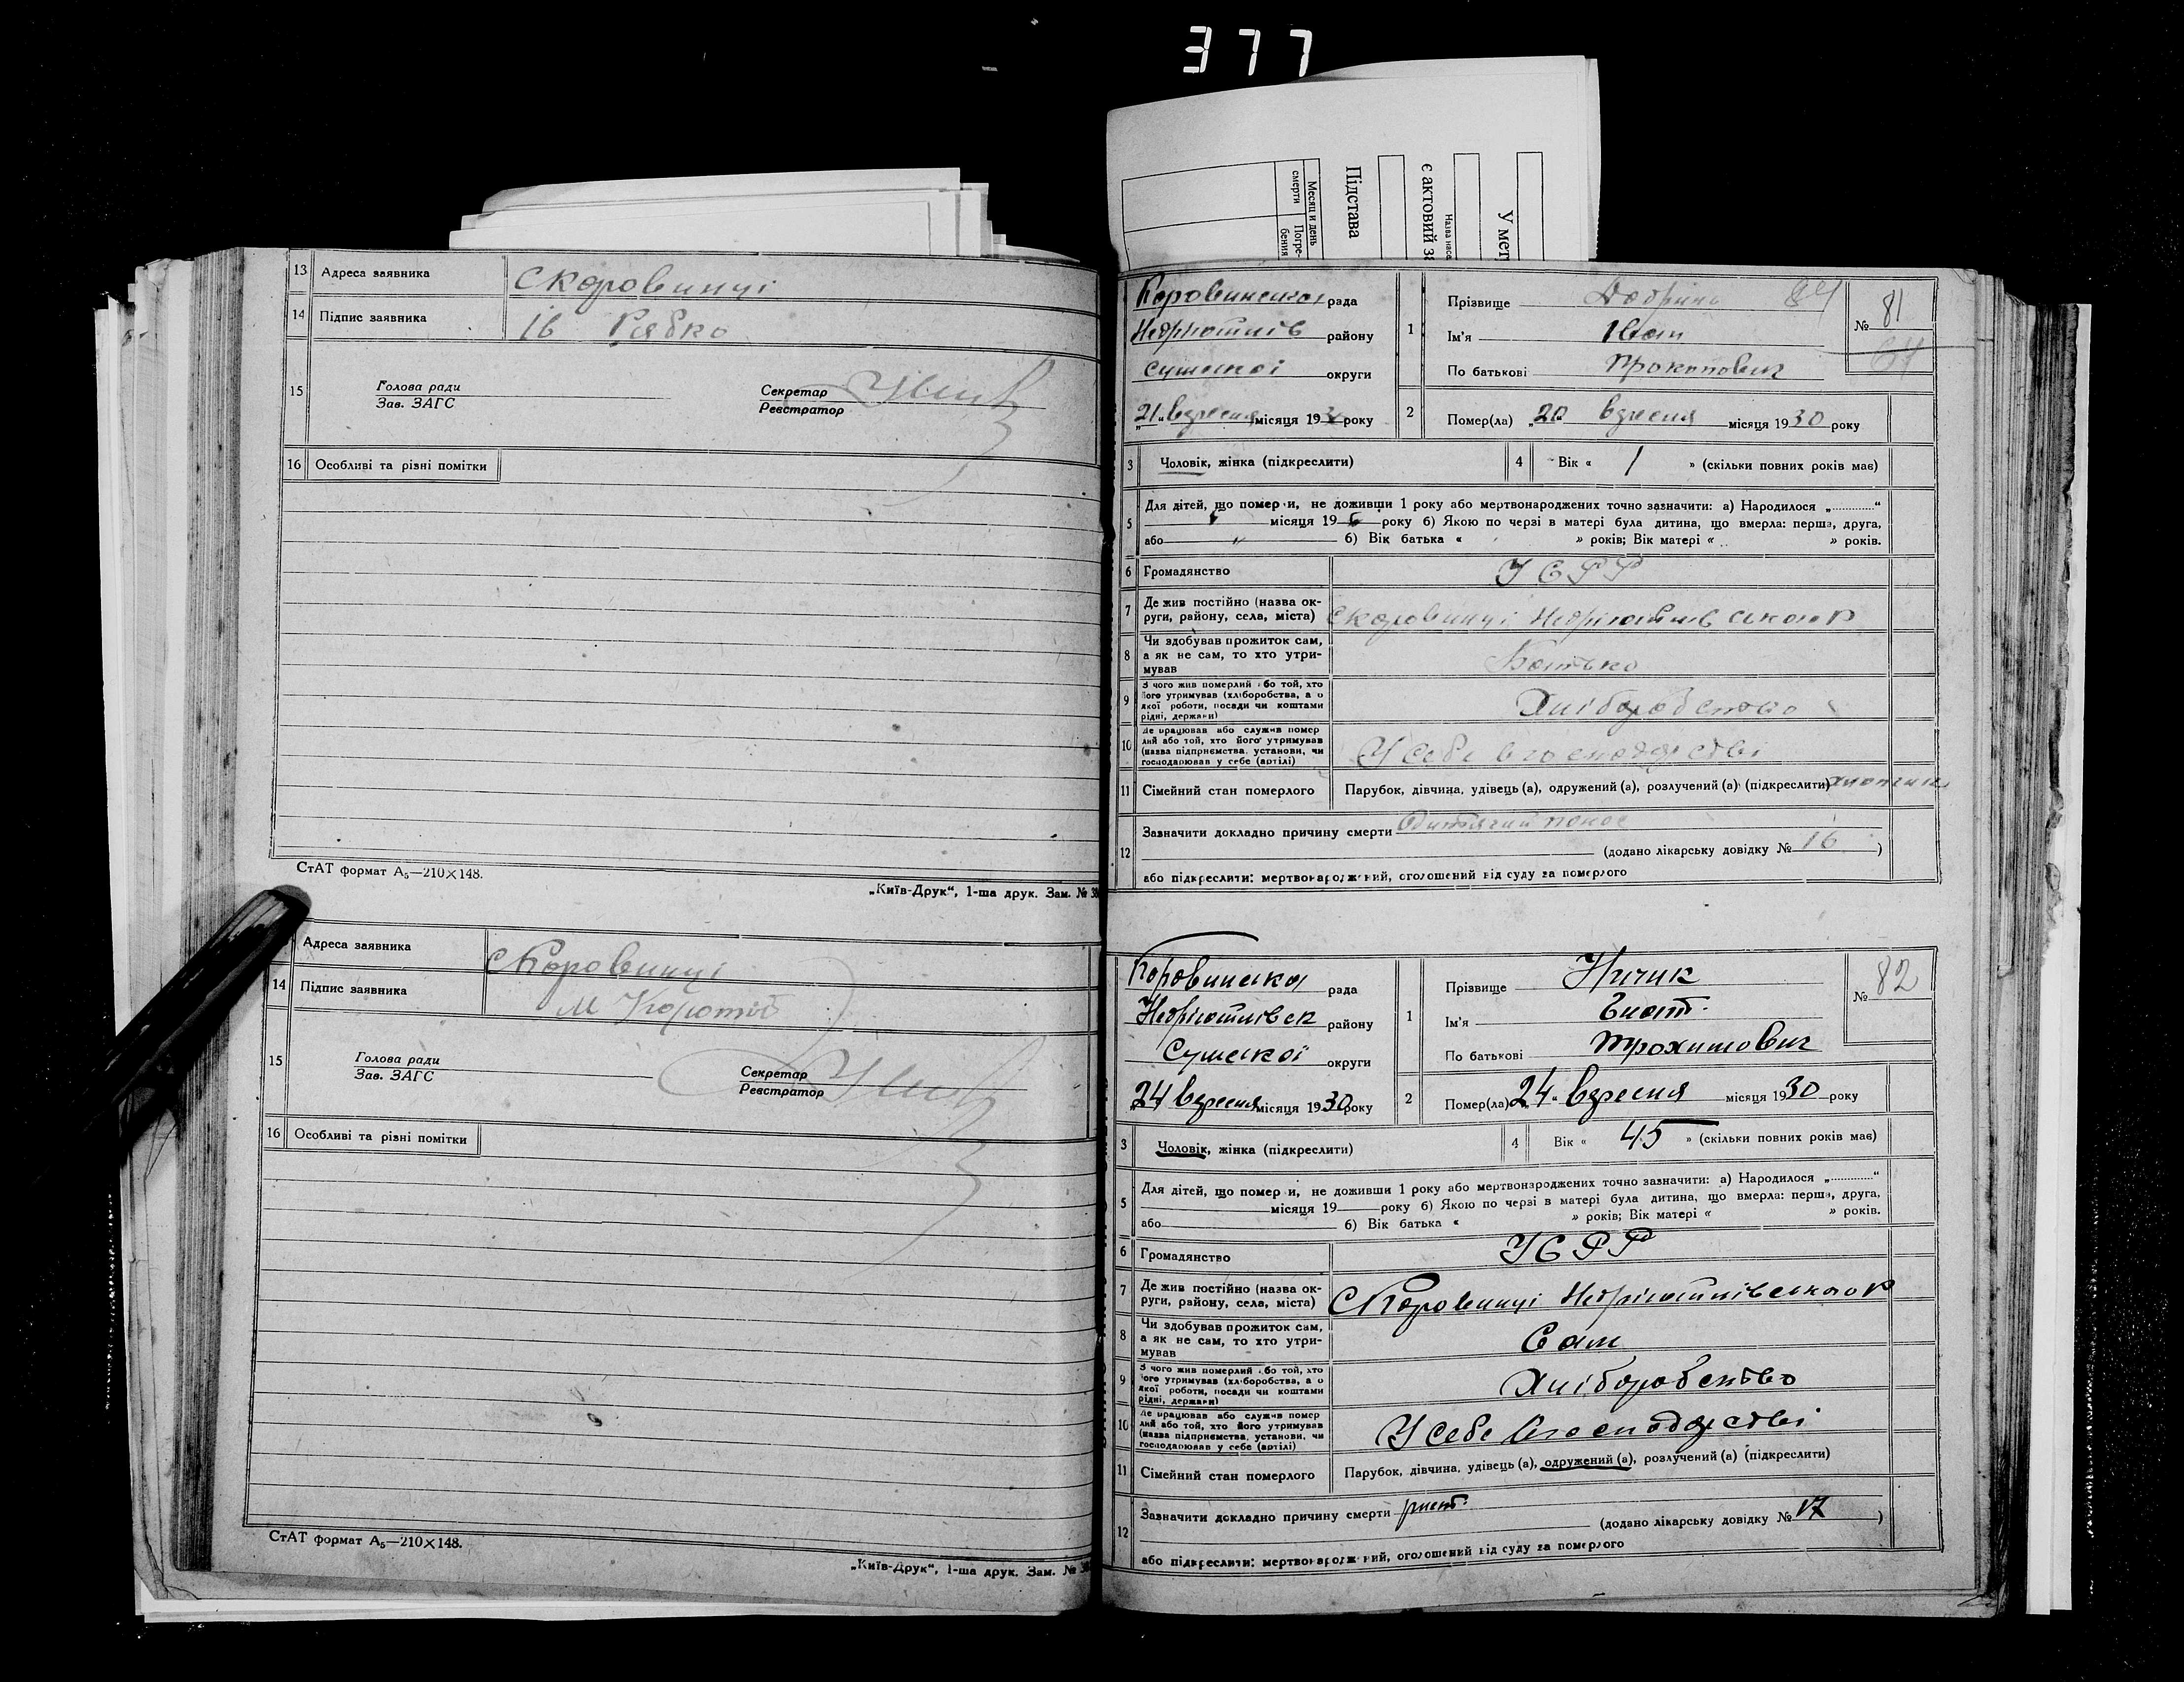 377
Месяц и день смерти
Погребения
Підстава
є актовий за
Назва насе
У мет
13 Адреса заявника Скоровинці
14 Підпис заявника Ів Рябко
15 Голова ради
Зав. ЗАГС
Секретар
Реєстратор
16 Особливі та різні помітки
СтАТ формат А₅—210×148.
„Київ-Друк“, 1-ша друк. Зам. № 38
Адреса заявника С Коровинці
14 Підпис заявника М Коротій
15 Голова ради
Зав. ЗАГС
Секретар
Реєстратор
16 Особливі та різні помітки
СтАТ формат А₅—210×148.
„Київ-Друк“, 1-ша друк. Зам. № 38
Коровинська рада
Недригайлів району
Сумської округи
„21“ вересня місяця 1930 року
1 Прізвище
Ім'я Іван
По батькові Прокопович
№ 81
84
2 Помер(ла) „20“ вересня місяця 1930 року
3 Чоловік, жінка (підкреслити)
4 Вік « 1 » (скільки повних років має)
5 Для дітей, що померли, не доживши 1 року або мертвонароджених точно зазначити: а) Народилося „............“
місяця 19 року б) Якою по черзі в матері була дитина, що вмерла: перша, друга,
або б) Вік батька « » років; Вік матері « » років.
6 Громадянство УСРР
7 Де жив постійно (назва округи, району, села, міста) С Коровинці Недрігайлівського Р
8 Чи здобував прожиток сам, а як не сам, то хто утримував Батько
9 З чого жив померлий або той, хто його утримував (хліборобства, а о якої роботи, посади чи коштами рідні, держави) Хліборобство
10 Де працював або служив померлий або той, хто його утримував (назва підприємства, установи, чи господарював у себе (артілі) У себе в господарстві
11 Сімейний стан померлого Парубок, дівчина, удівець (а), одружений (а), розлучений (а) (підкреслити) хлопчик
12 Зазначити докладно причину смерти Дитячий понос
(додано лікарську довідку № 16 )
або підкреслити: мертвонароджений, оголошений від суду за померлого
Коровинська рада
Недрігайлівськ району
Сумської округи
„24“ вересня місяця 1930 року
1 Прізвище Ничик
Ім'я Гнат
По батькові Трохимович
№ 82
2 Помер(ла) „24“ вересня місяця 1930 року
3 Чоловік, жінка (підкреслити)
4 Вік « 45 » (скільки повних років має)
5 Для дітей, що померли, не доживши 1 року або мертвонароджених точно зазначити: а) Народилося „............“
місяця 19 року б) Якою по черзі в матері була дитина, що вмерла: перша, друга,
або б) Вік батька « » років; Вік матері « » років.
6 Громадянство УСРР
7 Де жив постійно (назва округи, району, села, міста) С Коровинці Недрігайлівського Р
8 Чи здобував прожиток сам, а як не сам, то хто утримував Сам
9 З чого жив померлий або той, хто його утримував (хліборобства, а о якої роботи, посади чи коштами рідні, держави) Хліборобство
10 Де працював або служив померлий або той, хто його утримував (назва підприємства, установи, чи господарював у себе (артілі) У себе в господарстві
11 Сімейний стан померлого Парубок, дівчина, удівець (а), одружений (а), розлучений (а) (підкреслити)
12 Зазначити докладно причину смерти
(додано лікарську довідку № 17 )
або підкреслити: мертвонароджений, оголошений від суду за померлого